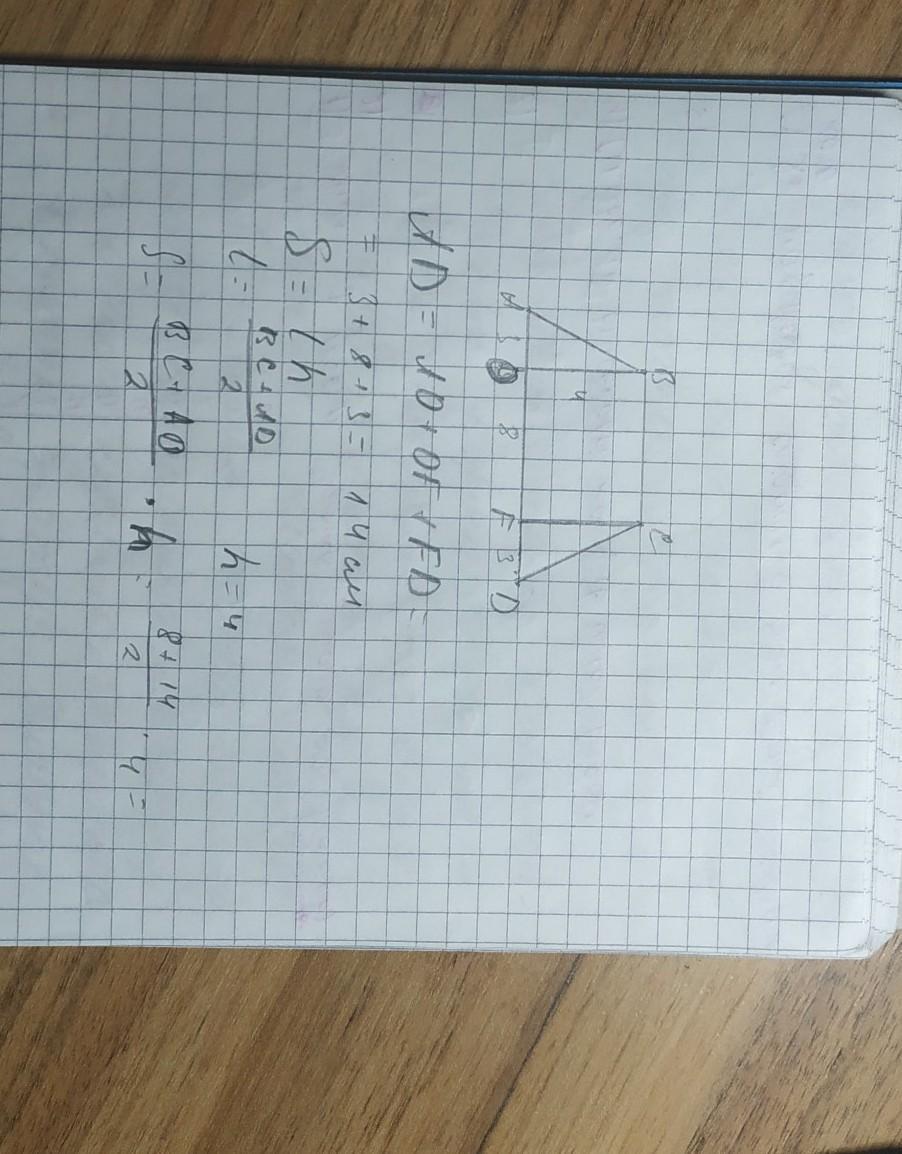 B C
4
A 3 O 8 F 3 D
AD = AO + OF + FD =
= 3 + 8 + 3 = 14 см
S = lh
l = BC + AD / 2 h = 4
S = BC + AD / 2 · h = 8 + 14 / 2 · 4 =